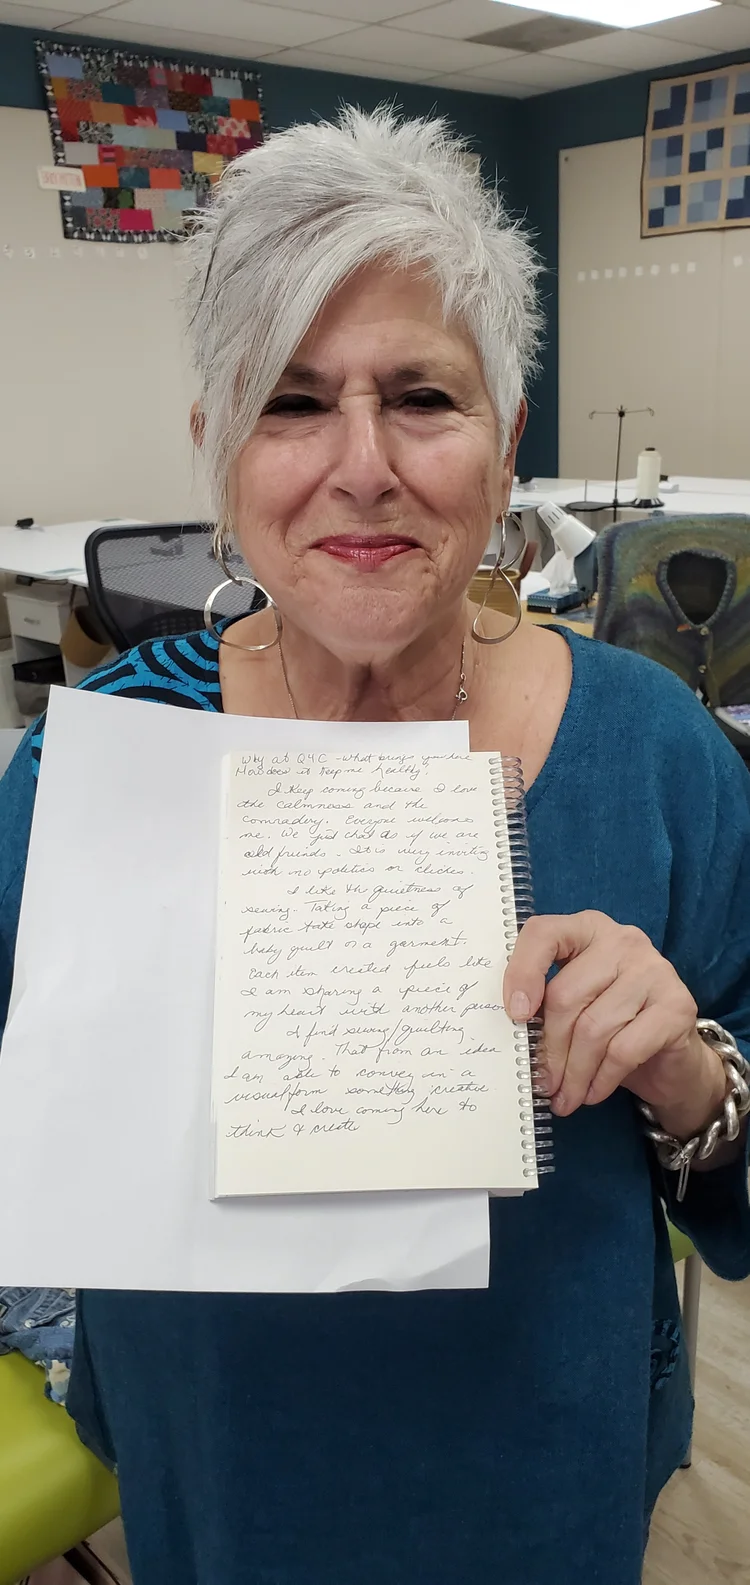 BABY MITTEN
Why at Q4C - What brings you here
How does it keep me healthy?
I keep coming because I love
the calmness and the
comradery. Everyone welcomes
me. We just chat as if we are
old friends. It is very inviting
with no politics or cliches.
I like the quietness of
sewing. Taking a piece of
fabric take shape into a
baby quilt or a garment.
Each item created feels like
I am sharing a piece of
my heart with another person
I find sewing/quilting
amazing. That from an idea
I am able to convey in a
visual form something creative
I love coming here to
think & create